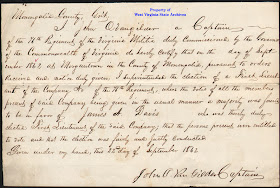 Property of
West Virginia State Archives
Monongalia County, Sct
I John Vangilder a Captain
of the 76th Regiment of the Virginia Militia duly Commissioned by the Governor
of the Commonwealth of Virginia do hereby certify that on the day of Sept
1862 at Morgantown in the County of Monongalia, pursuant to orders
Received and notice duly given, I superintended the election of a First Lieut
of the Company of of the 76th Regiment, where the votes of all the members
present of said Company being given in the manner a majority was found
to be in favor of James A Davis who was thereby duly
elected First Lieutenant of the said Company; that no persons present were entitled
to vote and that the election was fairly and justly conducted
Given under my hand, this day of September 1862.
John Van Gilder Captain